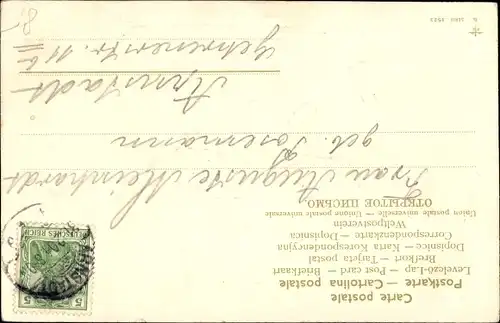 Carte postale
Postkarte — Cartolina postale
Levelező-Lap — Post card — Briefkaart
Brefkort — Tarjeta postal
Dopisnice — Karta Korespondencyjna
Correspondenzkarte — Dopisnica
Weltpostverein
Union postale universelle — Unione postale universale
ОТКРЫТОЕ ПИСЬМО
Frau Auguste Meinhardt
geb. Posermann
Arnstadt
11
5 5
DEUTSCHES REICH
ARNSTADT